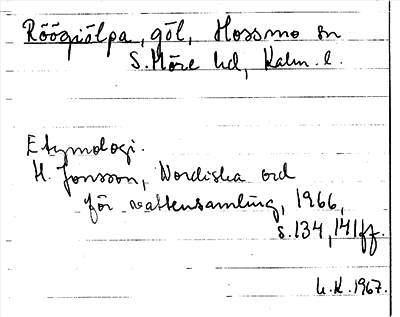 Röögiölpa, göl, Hossmo sn
S. Möre hd, Kalm. l.
Etymologi.
H. Jonsson, Nordiska ord
för vattensamling, 1966,
s. 134, 141ff.
U.K. 1967.